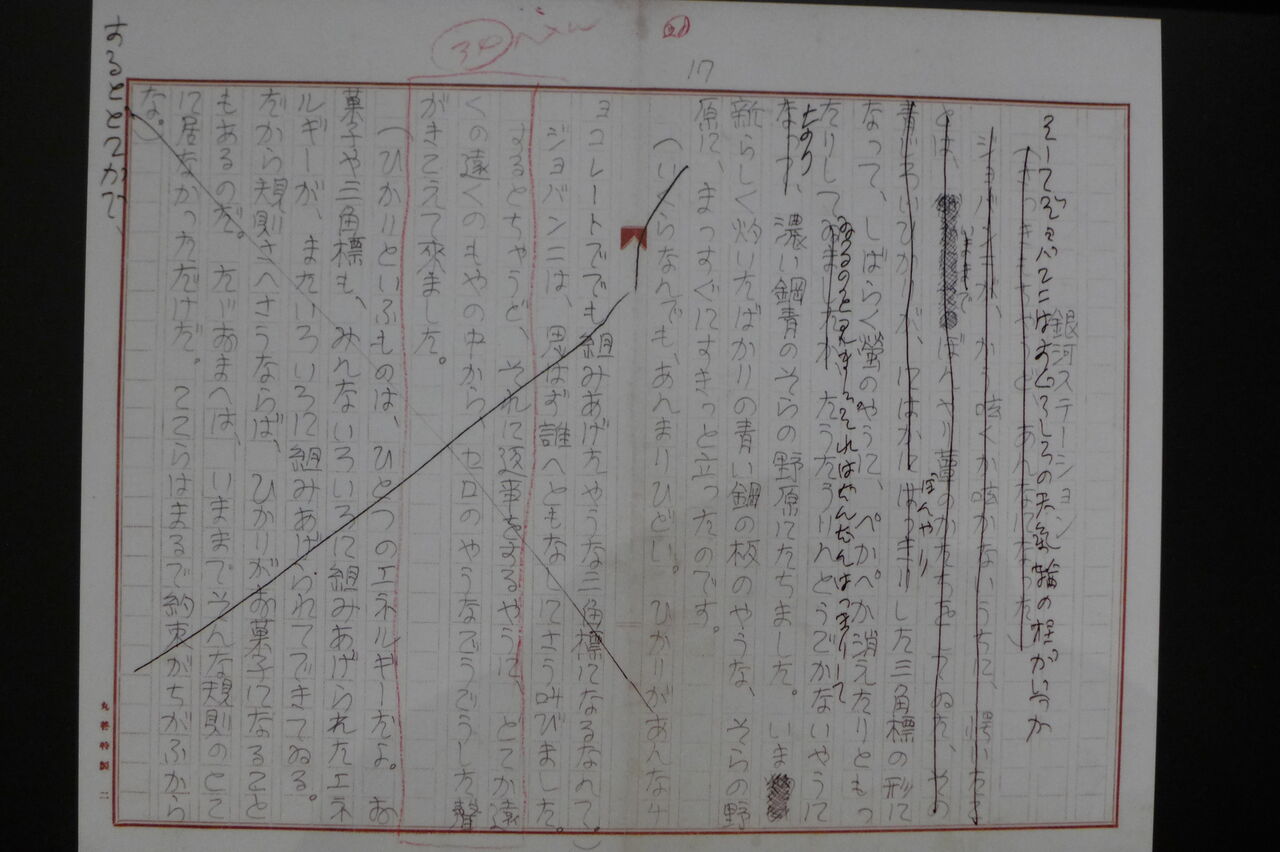 17
銀河ステーション
そしてジョバンニはすぐうしろの天気輪の柱がいつか
さっきもちゃうど、あんなになった
ぼんやり
青じろいひかりが、にはかにはっきりした三角標の形に
なって、しばらく蛍のやうに、ぺかぺか消えたりともっ
たりしてゐましたが、たうたうりんとうごかないやうに
ゐるのを見ました。それはだんだんはっきりして
なって、濃い鋼青のそらの野原にたちました。いま
新らしく灼いたばかりの青い鋼の板のやうな、そらの野
原に、まっすぐにすきっと立ったのです。
(いくらなんでも、あんまりひどい。ひかりがあんなチ
ョコレートででも組みあげたやうな三角標になるなんて。)
ジョバンニは、思はず誰へともなしにさう叫びました。
するとちゃうど、それに返事をするやうに、どこか遠
くの遠くのもやの中から、セロのやうなごうごうした聲
がきこえて来ました。
(ひかりといふものは、ひとつのエネルギーだよ。お
菓子や三角標も、みんないろいろに組みあげられたエネ
ルギーが、またいろいろに組みあげられてできてゐる。
だから規則さへさうならば、ひかりがお菓子になること
もあるのだ。たゞおまへは、いままでそんな規則のとこ
に居なかっただけだ。ここらはまるで約束がちがふから
な。)
するとどこかで、
丸善特製 二